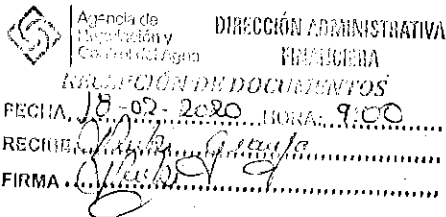 Agencia de
Regulación y
Control del Agua
DIRECCIÓN ADMINISTRATIVA
FINANCIERA
RECEPCIÓN DE DOCUMENTOS
FECHA 18-02-2020 HORA: 9:00
RECIBE
FIRMA